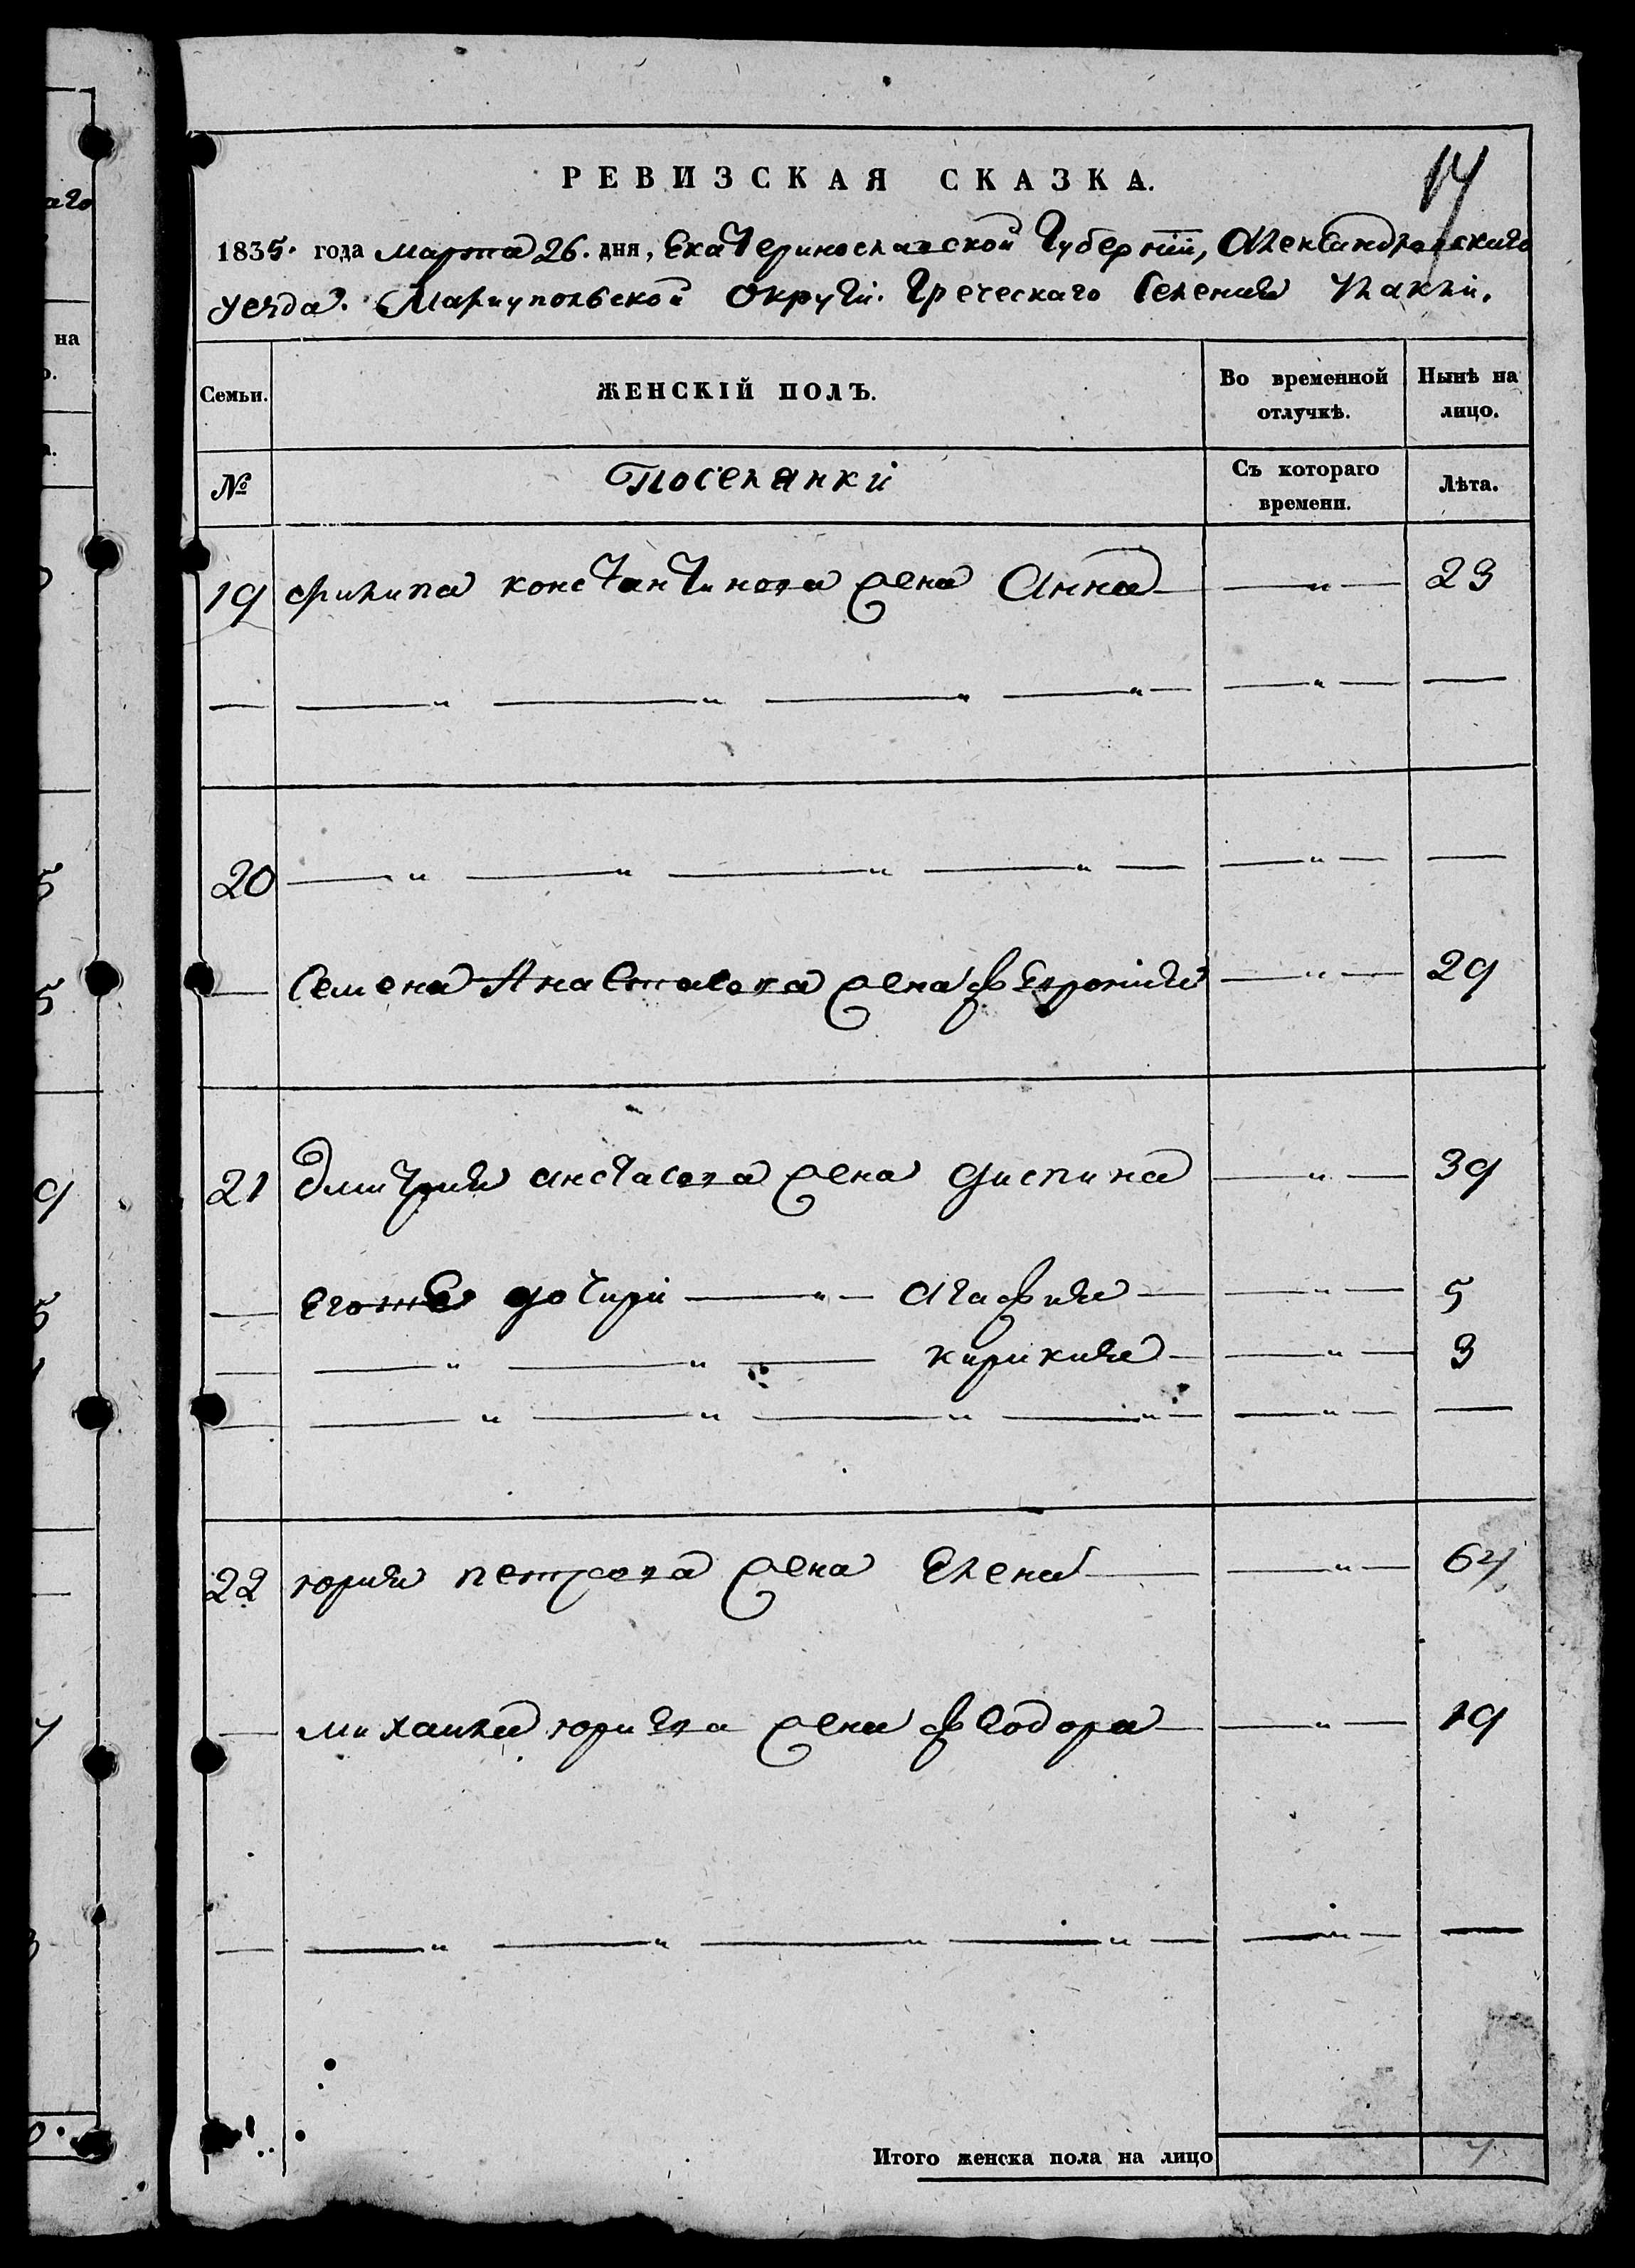 14
РЕВИЗСКАЯ СКАЗКА.
1835. года марта 26. дня, Екатеринославской Губернїи, Александровскаго
уезда. Мариупольской Округи. Греческаго Селения
Семьи. ЖЕНСКІЙ ПОЛЪ. Во временной отлучкѣ. Нынѣ на лицо.
№ Поселянкі Съ котораго времени. Лѣта.
19 Филипа Константинова жена Анна — " — 23
— — " — " — " — " — — " — —
20 — " — " — " — " — — " — —
— Семена Анастасова жена Февронїя — " — 29
21 Дмитрия Анстасова жена Диспина — " — 39
— Егоже дочирі — " — Агафия — " — 5
— — " — " — Кирикия — " — 3
— — " — " — " — " — — " — —
22 Юрия Петрова жена Елена — " — 64
— Михаила Юриева жена Феодора — " — 19
— — " — " — " — " — — " — —
Итого женска пола на лицо 7
аго
на